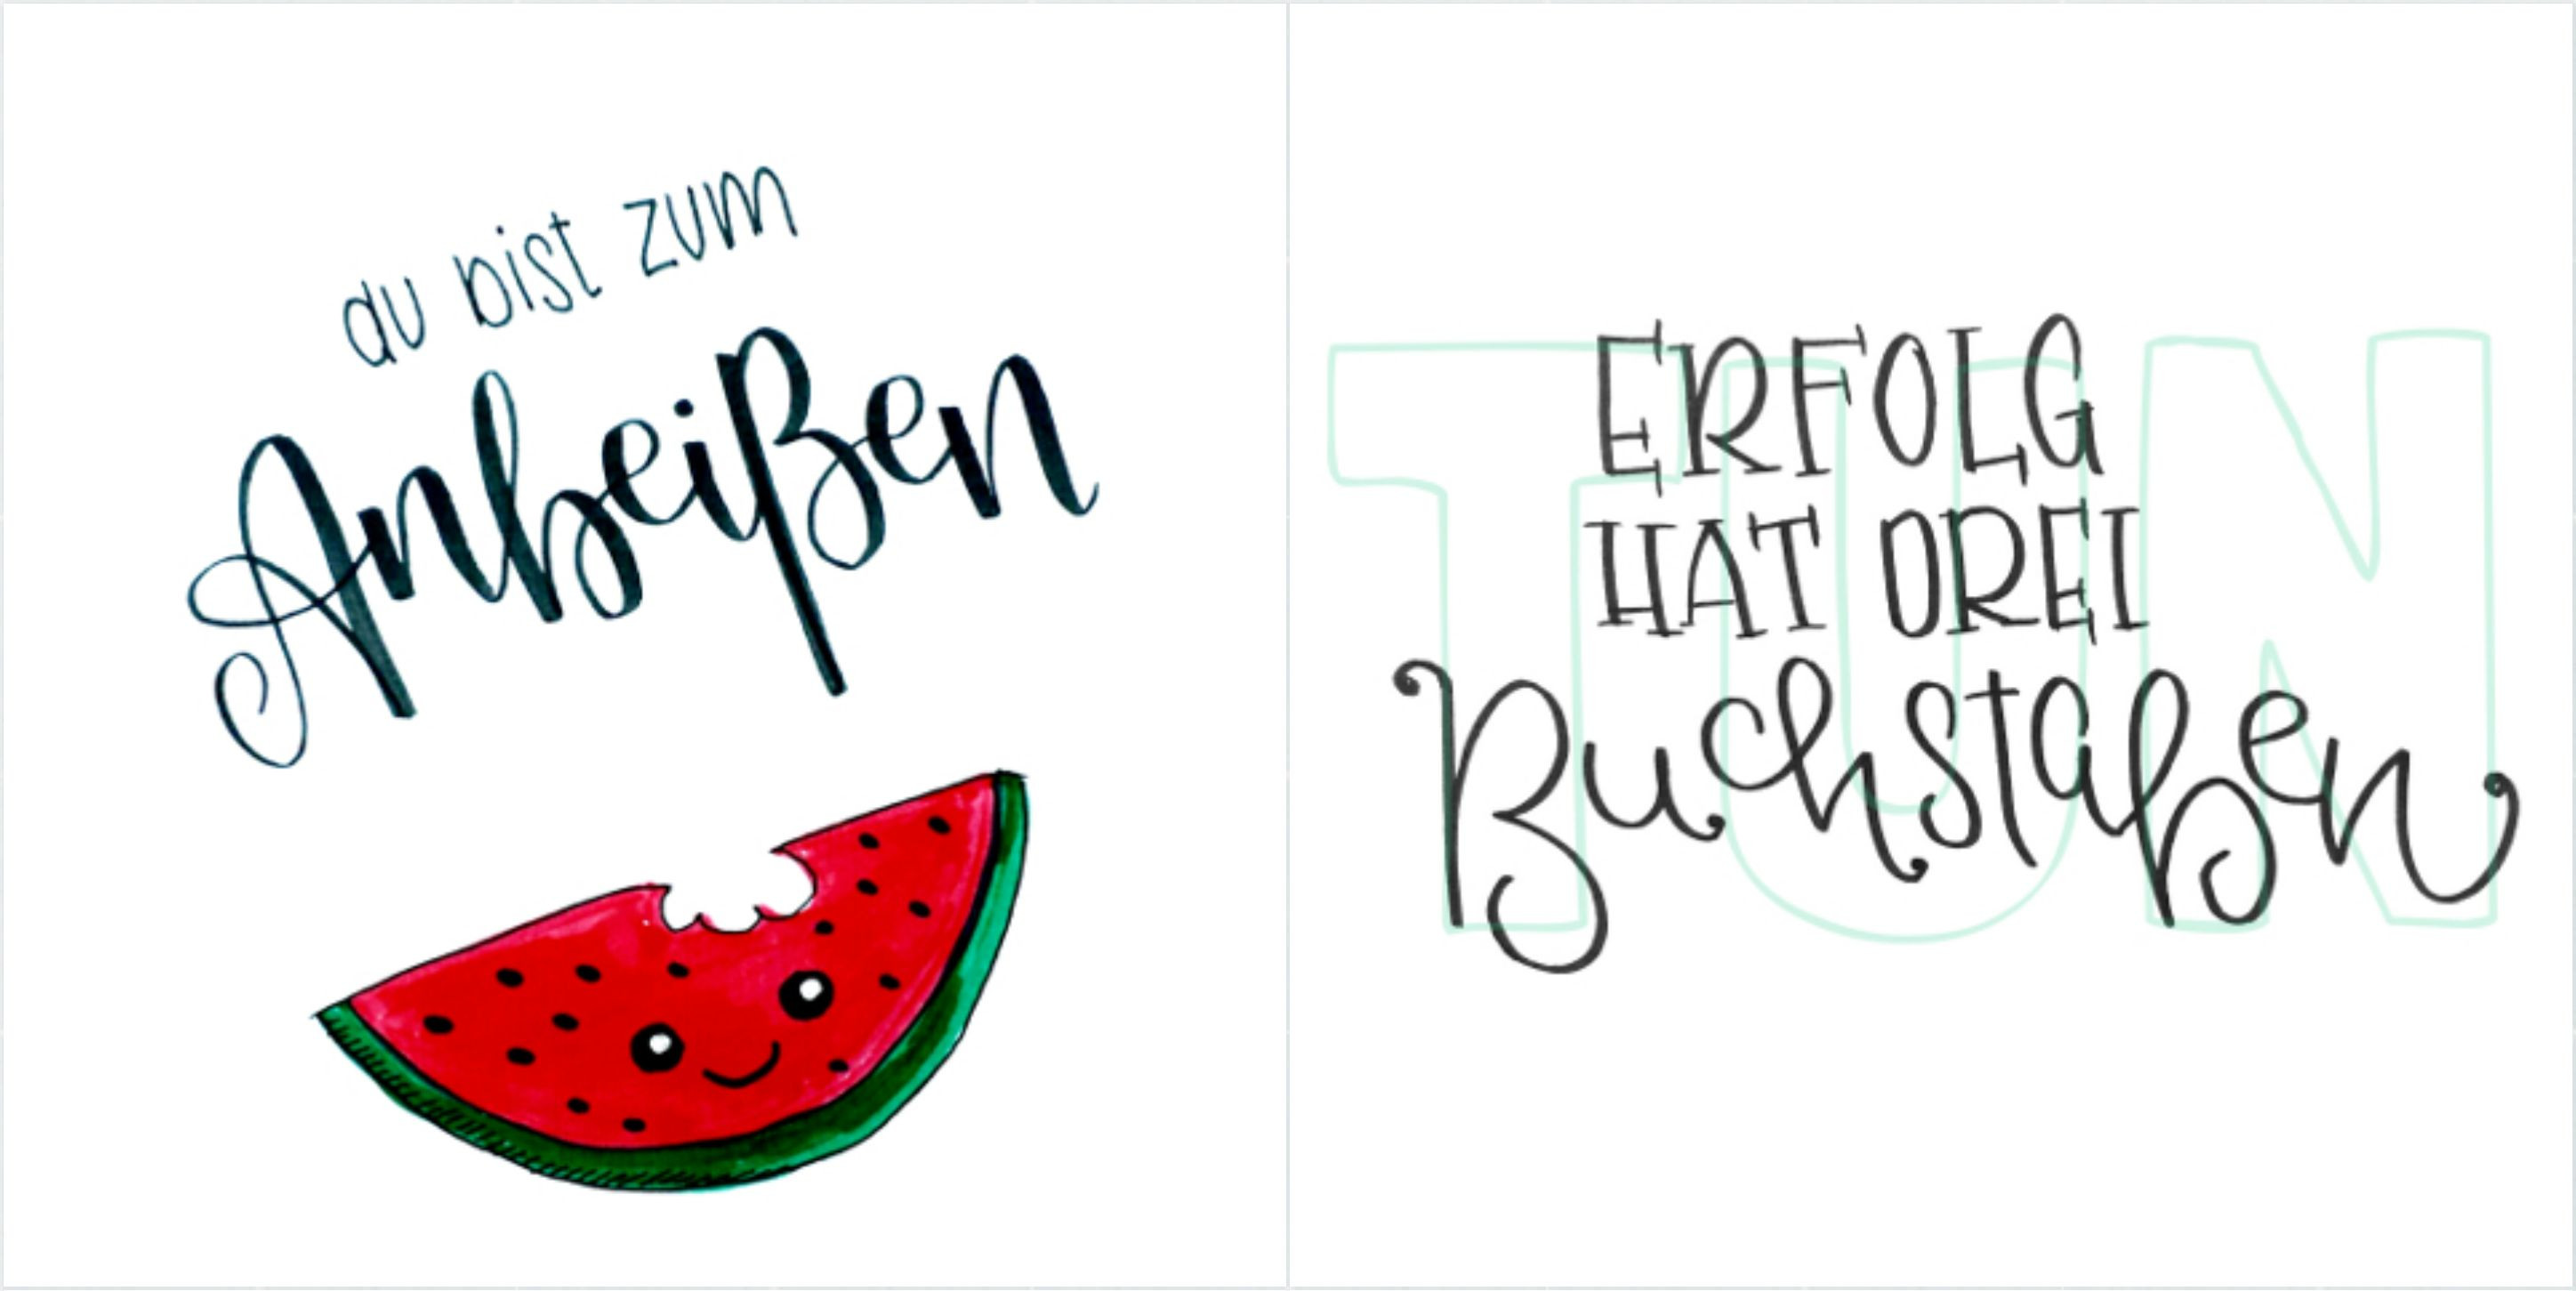 du bist zum
Anbeißen
ERFOLG
HAT DREI
Buchstaben
TUN